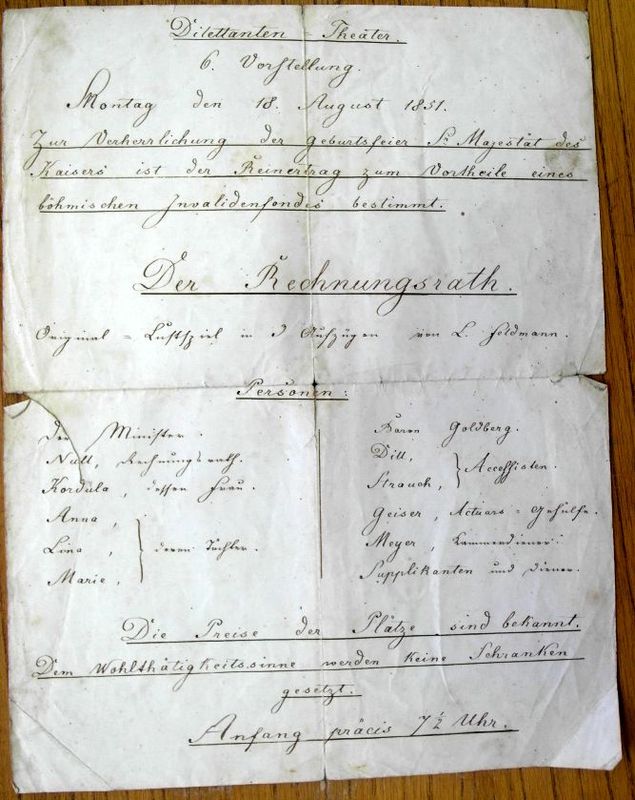 Dilettanten - Theater.
6. Vorstellung.
Montag den 18. August 1851.
Zur Verherrlichung der Geburtsfeier Sr Majestät des
Kaisers ist der Reinertrag zum Vortheile eines
böhmischen Invalidenfondes bestimmt.
Der Rechnungsrath.
Original = Lustspiel in 3 Aufzügen von L. Feldmann.
Personen:
Der Minister.
Null, Rechnungsrath.
Kordula, dessen Frau.
Anna,
Lina, deren Töchter.
Marie,
Baron Goldberg.
Dill,
Strauch, Accessisten.
Geiser, Actuars = Gehülfe.
Meyer, Kammerdiener.
Supplikanten und Diener.
Die Preise der Plätze sind bekannt.
Dem Wohlthätigkeitssinne werden keine Schranken
gesetzt.
Anfang präcis 7½ Uhr.